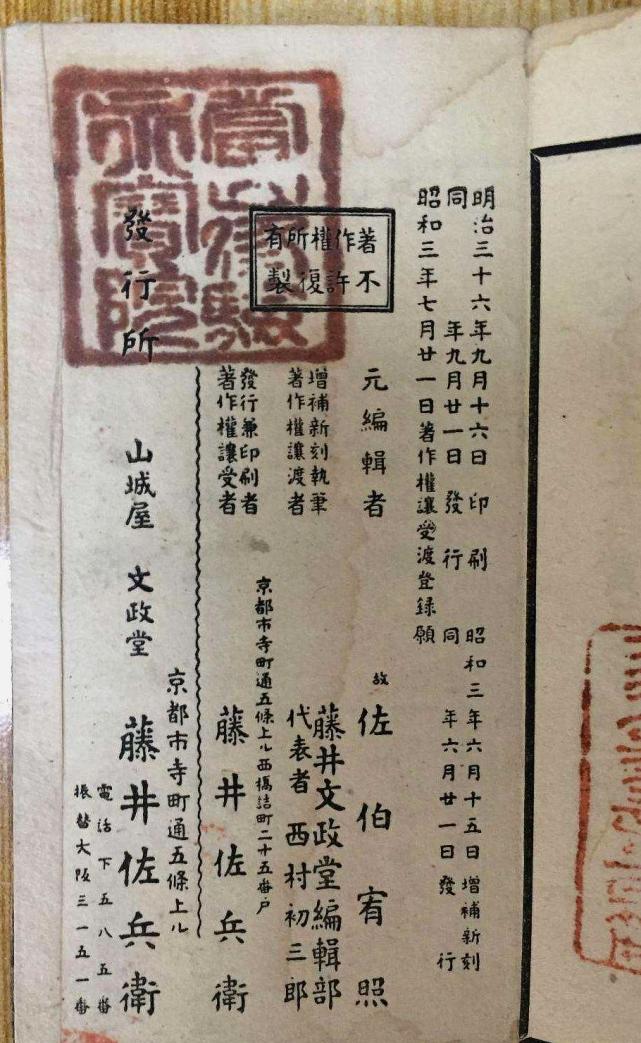 明治三十六年九月十六日 印刷 昭和三年六月十五日 增補新刻
同 年九月廿一日 發行 同 年六月廿一日 發行
昭和三年七月廿一日著作權讓受渡登録願
著作權所有
不許復製
元編輯者 故 佐伯宥照
增補新刻執筆
著作權讓渡者
藤井文政堂編輯部
代表者 西村初三郎
京都市寺町通五條上ル西橋詰町二十五番戸
發行兼印刷者
著作權讓受者
藤井佐兵衛
京都市寺町通五條上ル
發行所 山城屋 文政堂 藤井佐兵衛
電話下五八五番
振替大阪三一五一番